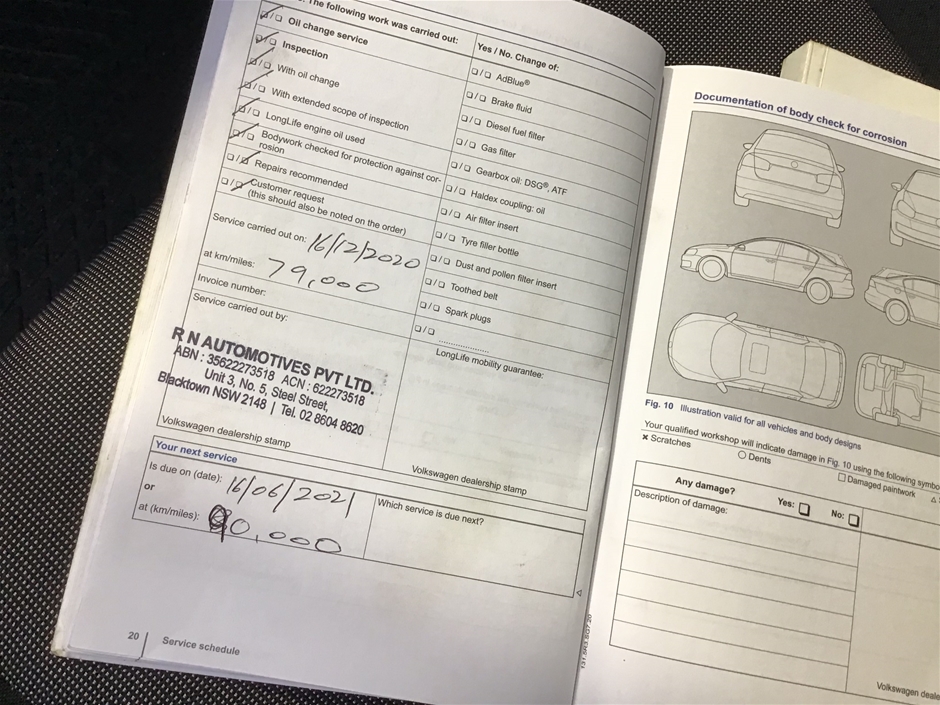 The following work was carried out:
❏/❏ Oil change service
❏/❏ Inspection
❏/❏ With oil change
❏/❏ With extended scope of inspection
❏/❏ LongLife engine oil used
❏/❏ Bodywork checked for protection against cor-
rosion
❏/❏ Repairs recommended
❏/❏ Customer request
(this should also be noted on the order)
Service carried out on: 16/12/2020
at km/miles: 79,000
Invoice number:
Service carried out by:
R N AUTOMOTIVES PVT LTD.
ABN : 35622273518 ACN : 622273518
Unit 3, No. 5, Steel Street,
Blacktown NSW 2148 | Tel. 02 8604 8620
Volkswagen dealership stamp
Yes / No. Change of:
❏/❏ AdBlue®
❏/❏ Brake fluid
❏/❏ Diesel fuel filter
❏/❏ Gas filter
❏/❏ Gearbox oil: DSG®, ATF
❏/❏ Haldex coupling: oil
❏/❏ Air filter insert
❏/❏ Tyre filler bottle
❏/❏ Dust and pollen filter insert
❏/❏ Toothed belt
❏/❏ Spark plugs
❏/❏ ....................
LongLife mobility guarantee:
Volkswagen dealership stamp
Your next service
Is due on (date): 16/06/2021
or
at (km/miles): 0,000
Which service is due next?
20 Service schedule
131.5R3.SQ7.20
Documentation of body check for corrosion
Fig. 10 Illustration valid for all vehicles and body designs
Your qualified workshop will indicate damage in Fig. 10 using the following symbo
✖ Scratches
○ Dents
❏ Damaged paintwork
Any damage? Yes: ❏ No: ❏
Description of damage:
Volkswagen deale